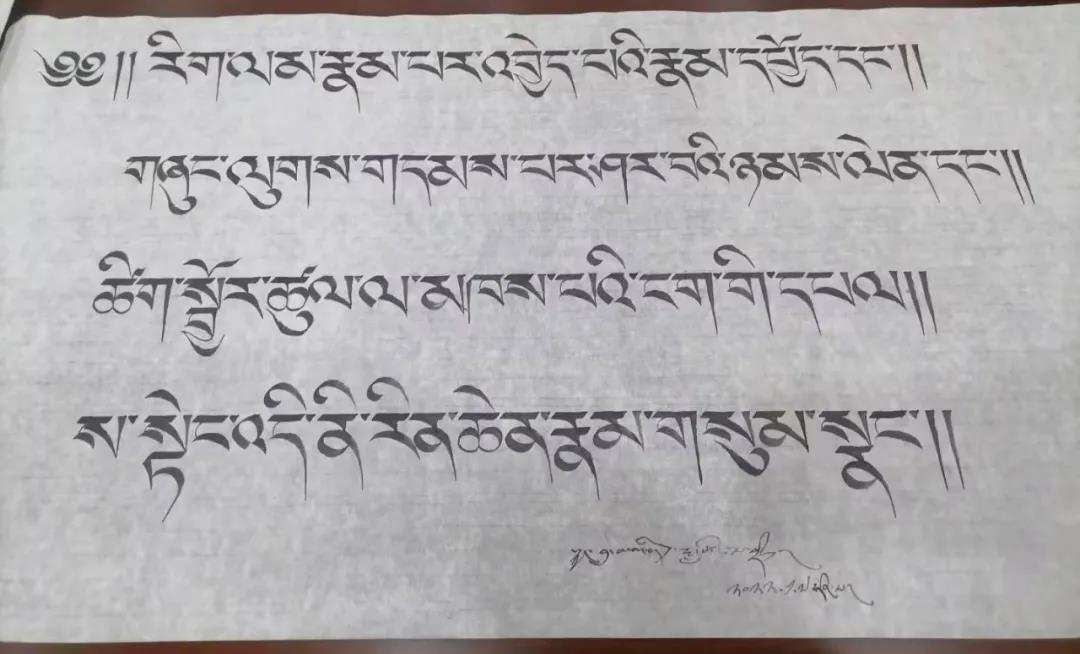 ༄༅།། རིག་ལམ་རྣམ་པར་འབྱེད་པའི་རྣམ་དཔྱོད་དང་།།
གཞུང་ལུགས་གདམས་པར་ཤར་བའི་ཉམས་ལེན་དང་།།
ཚིག་སྦྱོར་ཚུལ་ལ་མཁས་པའི་ངག་གི་དཔལ།།
ས་སྟེང་འདི་ན་རིན་ཆེན་རྣམ་གསུམ་སྣང་།།